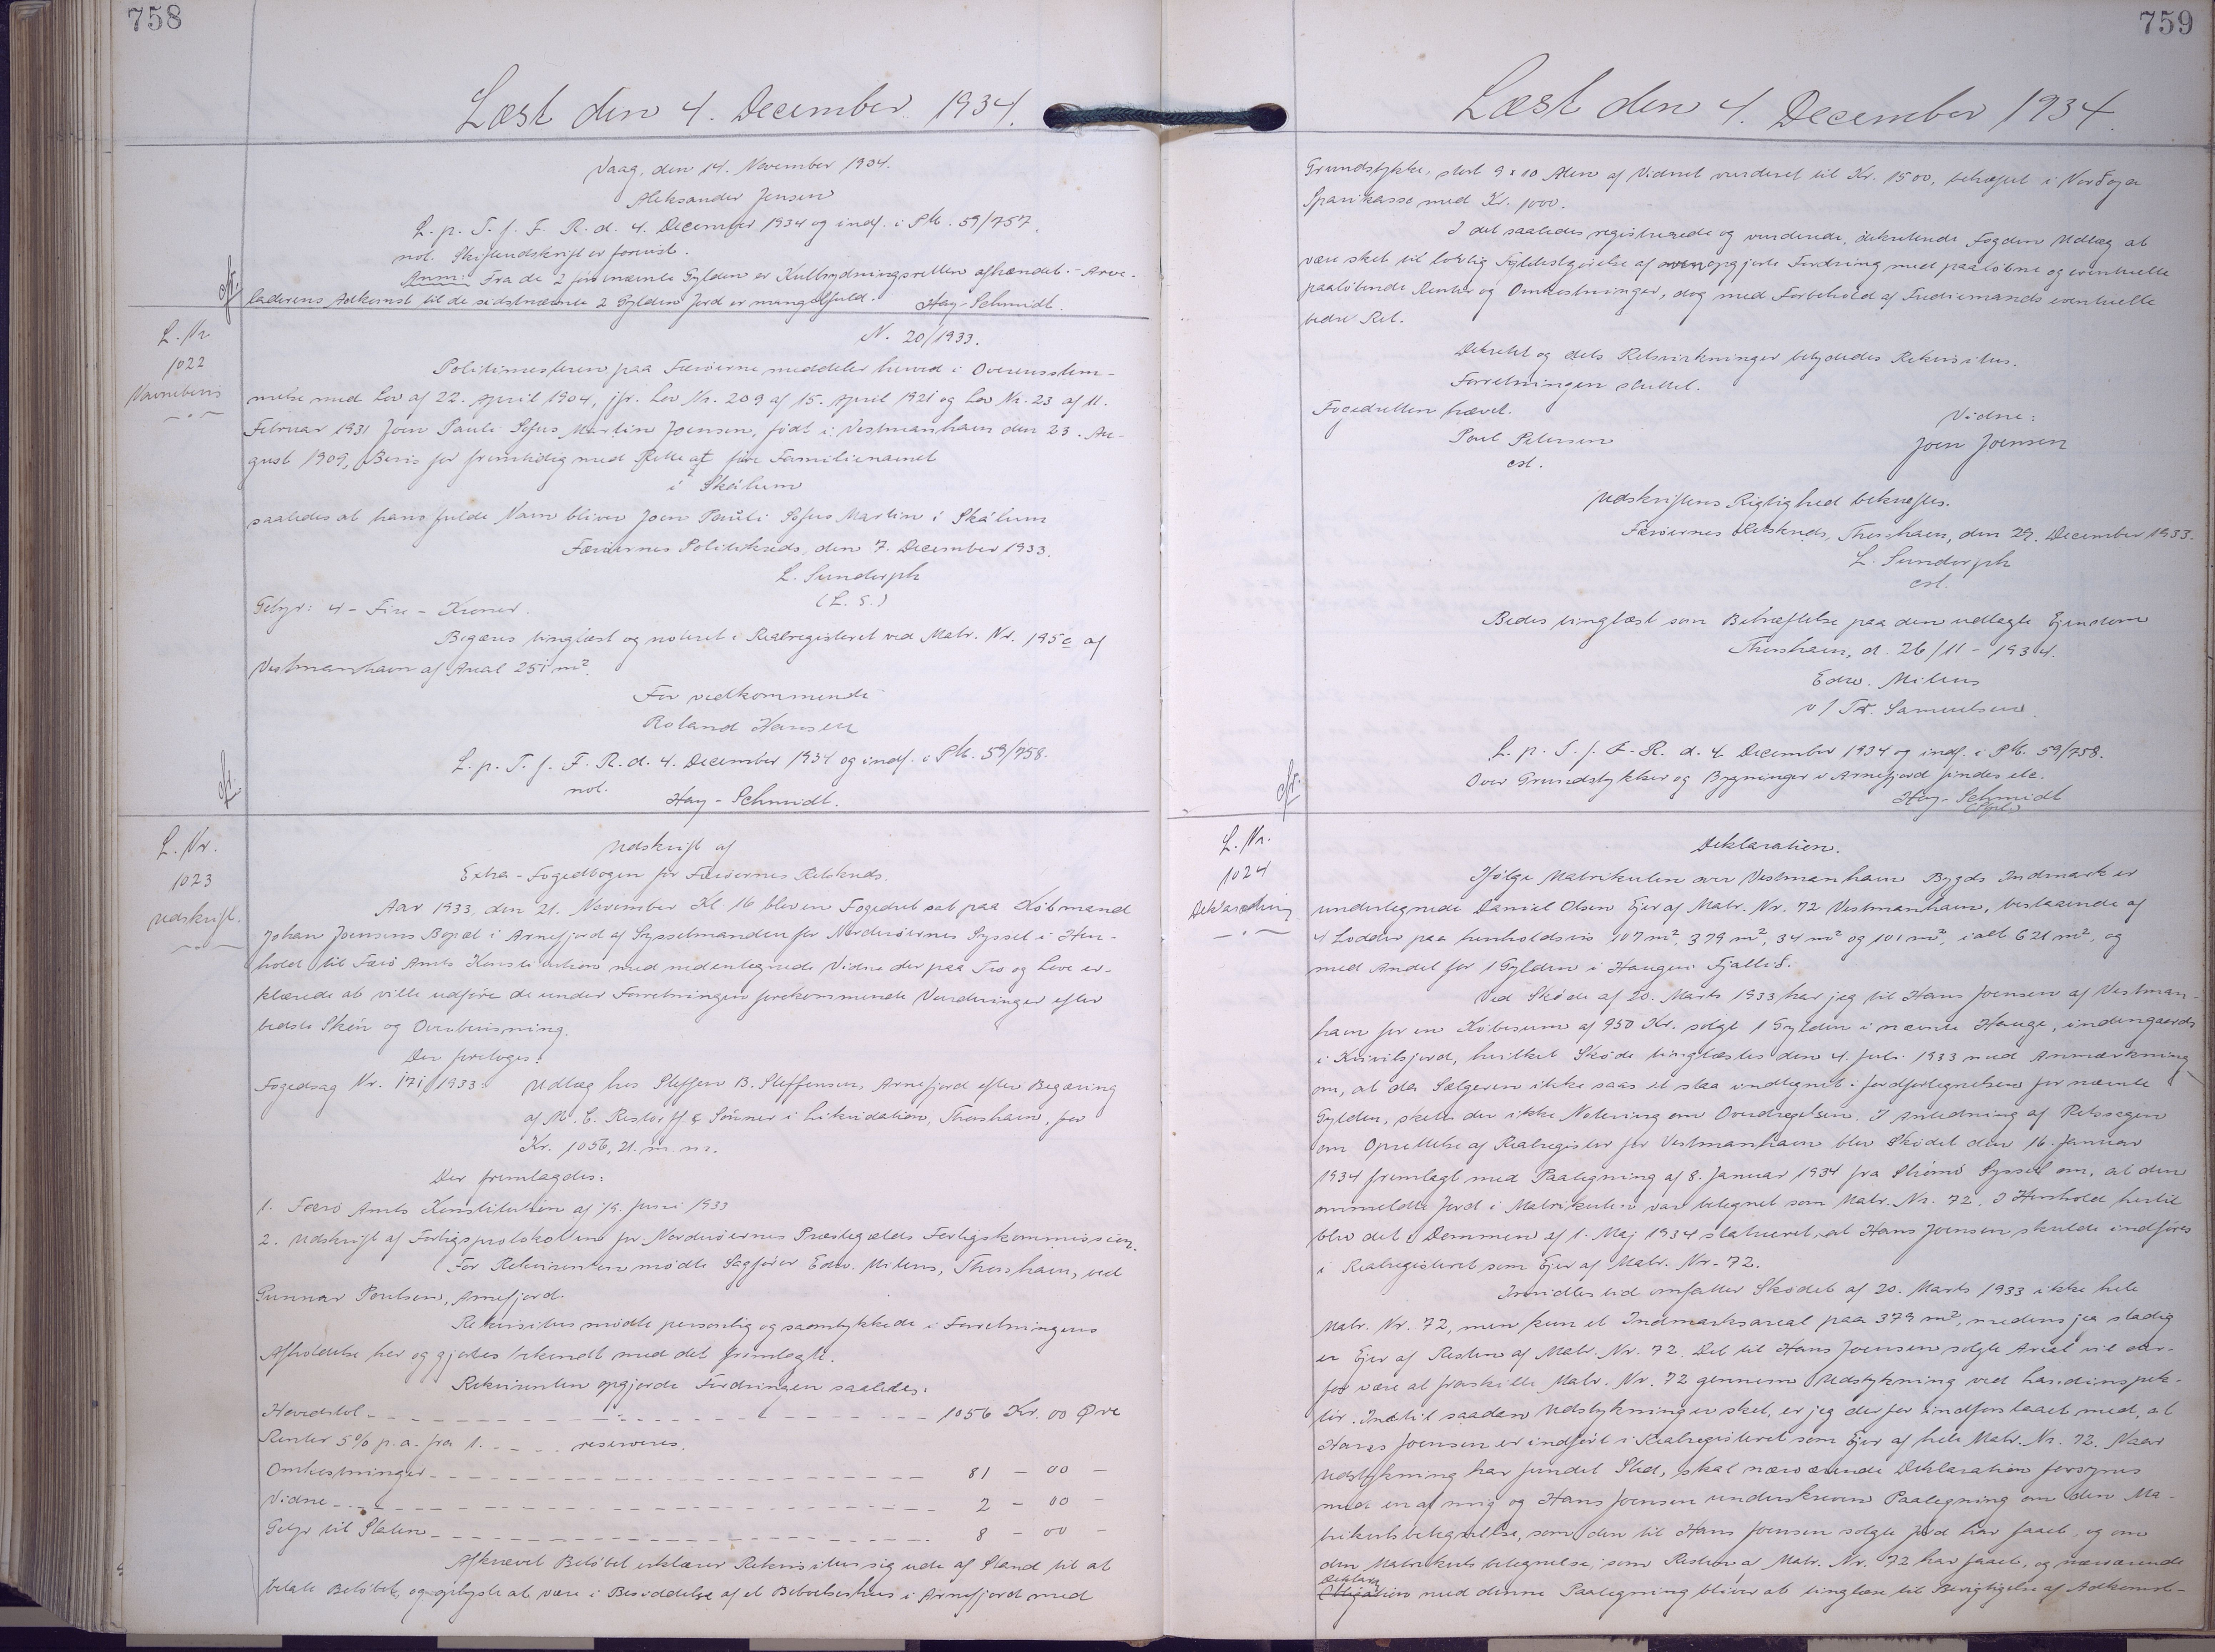 758
Læst den 4. December 1934.
Vaag, den 14. November 1934.
Aleksander Jensen
L. p. T. f. F. R. d. 4. December 1934 og indf. i Pb. 59/757.
not. Skifteudskrift er forevist.
Anm: Fra de 2 førnævnte Gylden er Kulbrydningsretten afhændet. - Arve-
cfr.
laderens Adkomst til de sidstnævnte 2 Gylden Jord er mangelfuld. Hay-Schmidt.
L. Nr.
1022
Navnebevis
N. 20/1933.
Politimesteren paa Færøerne meddeler herved i Overensstem-
melse med Lov af 22. April 1904, jfr. Lov Nr. 209 af 15. April 1921 og Lov Nr. 23 af 11.
Februar 1931 Joen Pauli Sofus Martin Joensen, født i Vestmanhavn den 23. Au-
gust 1909, Bevis for fremtidig med Rette at føre Familienavnet
i Skálum
saaledes at hans fulde Navn bliver Joen Pauli Sofus Martin i Skálum
Færøernes Politikreds, den 7. December 1933.
L. Sunderph
(L. S.)
Gebyr: 4 - Fire - Kroner.
Begæres tinglæst og noteret i Realregisteret ved Matr. Nr. 195c af
Vestmanhavn af Areal 251 m².
For vedkommende
Roland Hansen
L. p. T. f. F. R. d. 4. December 1934 og indf. i Pb. 59/758.
not.
cfr. Hay-Schmidt.
L. Nr.
1023
Udskrift.
Udskrift af
Extra-Fogedbogen for Færøernes Retskreds.
Aar 1933, den 21. November Kl. 16 blev en Fogedret sat paa Købmand
Johan Joensens Bopæl i Arnefjord af Sysselmanden for Norderøernes Syssel i Hen-
hold til Færø Amts Konstitution med nedentegnede Vidne der paa Tro og Love er-
klærede at ville udføre de under Forretningen forekommende Vurderinger efter
bedste Skøn og Overbevisning.
Der foretoges:
Fogedsag Nr. 171/1933: Udlæg hos Steffen B. Steffensen, Arnefjord efter Begæring
af M. C. Restorff & Sønner i Likvidation, Thorshavn, for
Kr. 1056,21. m. m.
Der fremlagdes:
1. Færø Amts Konstitution af 19. Juni 1933
2. Udskrift af Forligsprotokollen for Norderøernes Præstegælds Forligskommission.
For Rekvirenten mødte Sagfører Edw. Mitens, Thorshavn, ved
Gunnar Poulsen, Arnefjord.
Rekvisitus mødte personlig og samtykkede i Forretningens
Afholdelse her og gjordes bekendt med det fremlagte.
Rekvirenten opgjorde Fordringen saaledes:
Hovedstol 1056 Kr. 00 Øre
Renter 5% p. a. fra 1. reserveres.
Omkostninger 81 - 00 -
Vidne 2 - 00 -
Gebyr til Staten 8 - 00 -
Afkrævet Beløbet erklærer Rekvisitus sig ude af Stand til at
betale Beløbet, og oplyste at være i Besiddelse af et Beboelseshus i Arnefjord med
759
Læst den 4. December 1934.
Grundstykke, stort 9 x 10 Alen af Vidnet vurderet til Kr. 1500, behæftet i Norðoya
Sparikassa med Kr. 1000.
I det saaledes registrerede og vurderede, dekreterede Fogden Udlæg at
være sket til lovlig Fyldestgørelse af ovenopgjorte Fordring med paaløbne og eventuelle
paaløbende Renter og Omkostninger, dog med Forbehold af Trediemands eventuelle
bedre Ret.
Dekretet og dets Retsvirkninger betydedes Rekvisitus.
Forretningen sluttet.
Fogedretten hævet.
Vidne:
Poul Petersen
cst.
Joen Joensen
Udskriftens Rigtighed bekræftes.
Færøernes Retskreds, Thorshavn, den 29. December 1933.
L. Sunderph
cst.
Bedes tinglæst som Behæftelse paa den udlagte Ejendom
Thorshavn, d. 26/11 - 1934.
Edw. Mitens
v/ Samuelsen
L. p. T. f. F. R. d. 4. December 1934 og indf. i Pb. 59/758.
Over Grundstykker og Bygninger i Arnefjord findes etc.
cfr. Hay-Schmidt
L. Nr.
1024
Deklaration
Deklaration.
Ifølge Matrikulen over Vestmanhavn Bygds Indmark er
undertegnede Daniel Olsen Ejer af Matr. Nr. 72 Vestmanhavn, bestaaende af
4 Lodder paa henholdsvis 107 m², 379 m², 34 m² og 101 m², ialt 621 m², og
med Andel for 1 Gylden i Haugen Fjallið.
Ved Skøde af 20. Marts 1933 har jeg til Hans Joensen af Vestman-
havn for en Købesum af 950 Kr. solgt 1 Gylden i nævnte Hauge, indengaards
i Kvivilsjord, hvilket Skøde tinglæstes den 4. Juli 1933 med Anmærkning
om, at da Sælgeren ikke saas at staa indtegnet i Jordfortegnelsen for nævnte
Gylden, skete der ikke Notering om Overdragelsen. I Anledning af Retssagen
om Oprettelse af Realregister for Vestmanhavn blev Skødet den 16. Januar
1934 fremlagt med Paategning af 8. Januar 1934 fra Strømø Syssel om, at den
ommeldte Jord i Matrikulen var betegnet som Matr. Nr. 72. I Henhold hertil
blev det i Dommen af 1. Maj 1934 statueret, at Hans Joensen skulde indføres
i Realregisteret som Ejer af Matr. Nr. 72.
Imidlertid omfatter Skødet af 20. Marts 1933 ikke hele
Matr. Nr. 72, men kun et Indmarksareal paa 379 m², medens jeg stadig
er Ejer af Resten af Matr. Nr. 72. Det til Hans Joensen solgte Areal vil der-
for være at fraskille Matr. Nr. 72 gennem Udstykning ved Landinspek-
tør. Indtil saadan Udstykning er sket, er jeg derfor indforstaaet med, at
Hans Joensen er indført i Realregisteret som Ejer af hele Matr. Nr. 72. Naar
Udstykning har fundet Sted, skal nærværende Deklaration forsynes
med en af mig og Hans Joensen underskreven Paategning om den Ma-
trikulsbetegnelse, som den til Hans Joensen solgte Jord har faaet, og om
den Matrikulsbetegnelse, som Resten af Matr. Nr. 72 har faaet, og nærværende
Deklara
Obligation med denne Paategning bliver at tinglæse til Berigtigelse af Adkomst-